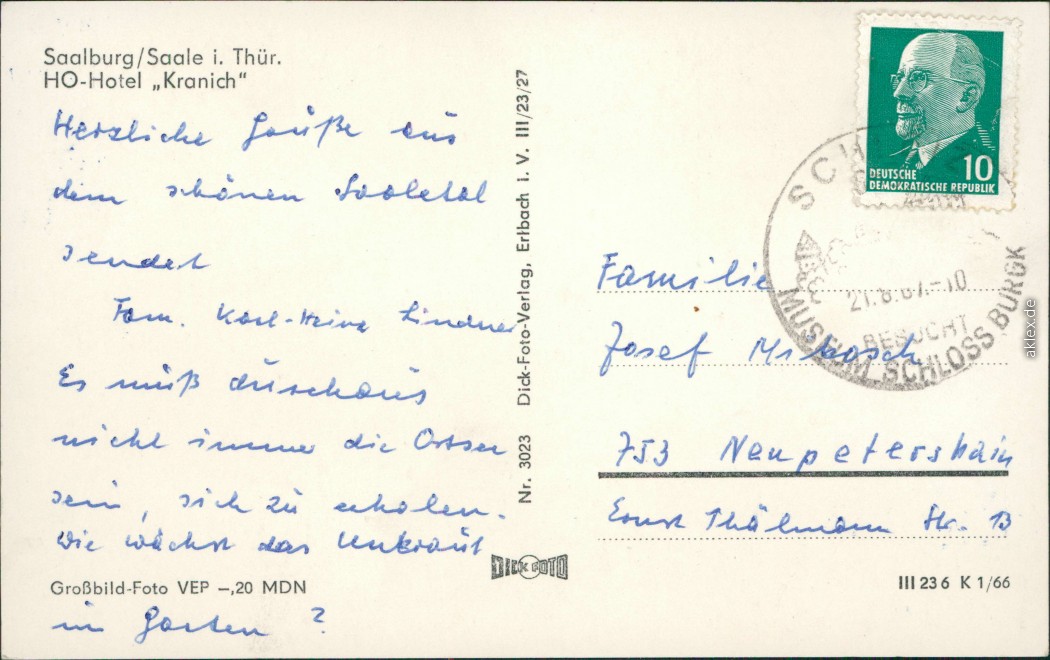 Saalburg/Saale i. Thür.
HO-Hotel „Kranich“
Herzliche Grüße aus
dem schönen Saaletal
sendet
Fam. Karl-Heinz Lindner
Es muß durchaus
nicht immer die Ostsee
sein, sich zu erholen.
Wie wächst das Unkraut
Großbild-Foto VEP –,20 MDN
im Garten ?
Nr. 3023 Dick-Foto-Verlag, Erlbach i. V. III/23/27
DICK FOTO
10
DEUTSCHE
DEMOKRATISCHE REPUBLIK
21.8.67.-10
BESUCHT
MUSEUM SCHLOSS BURGK
Familie
Josef
753 Neupetershain
Ernst Thälmann Str. 13
III 23 6 K 1/66
aklex.de